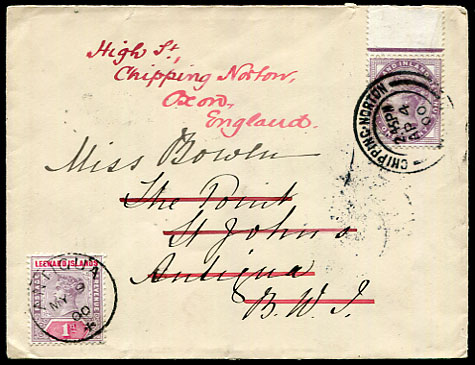 High St,
Chipping Norton,
Oxon,
England.
CHIPPING-NORTON
AP 4
00
Miss Bowen
The Point
St John's
Antigua
B. W. I.
LEEWARD ISLANDS
ANTIGUA
MY 9
00